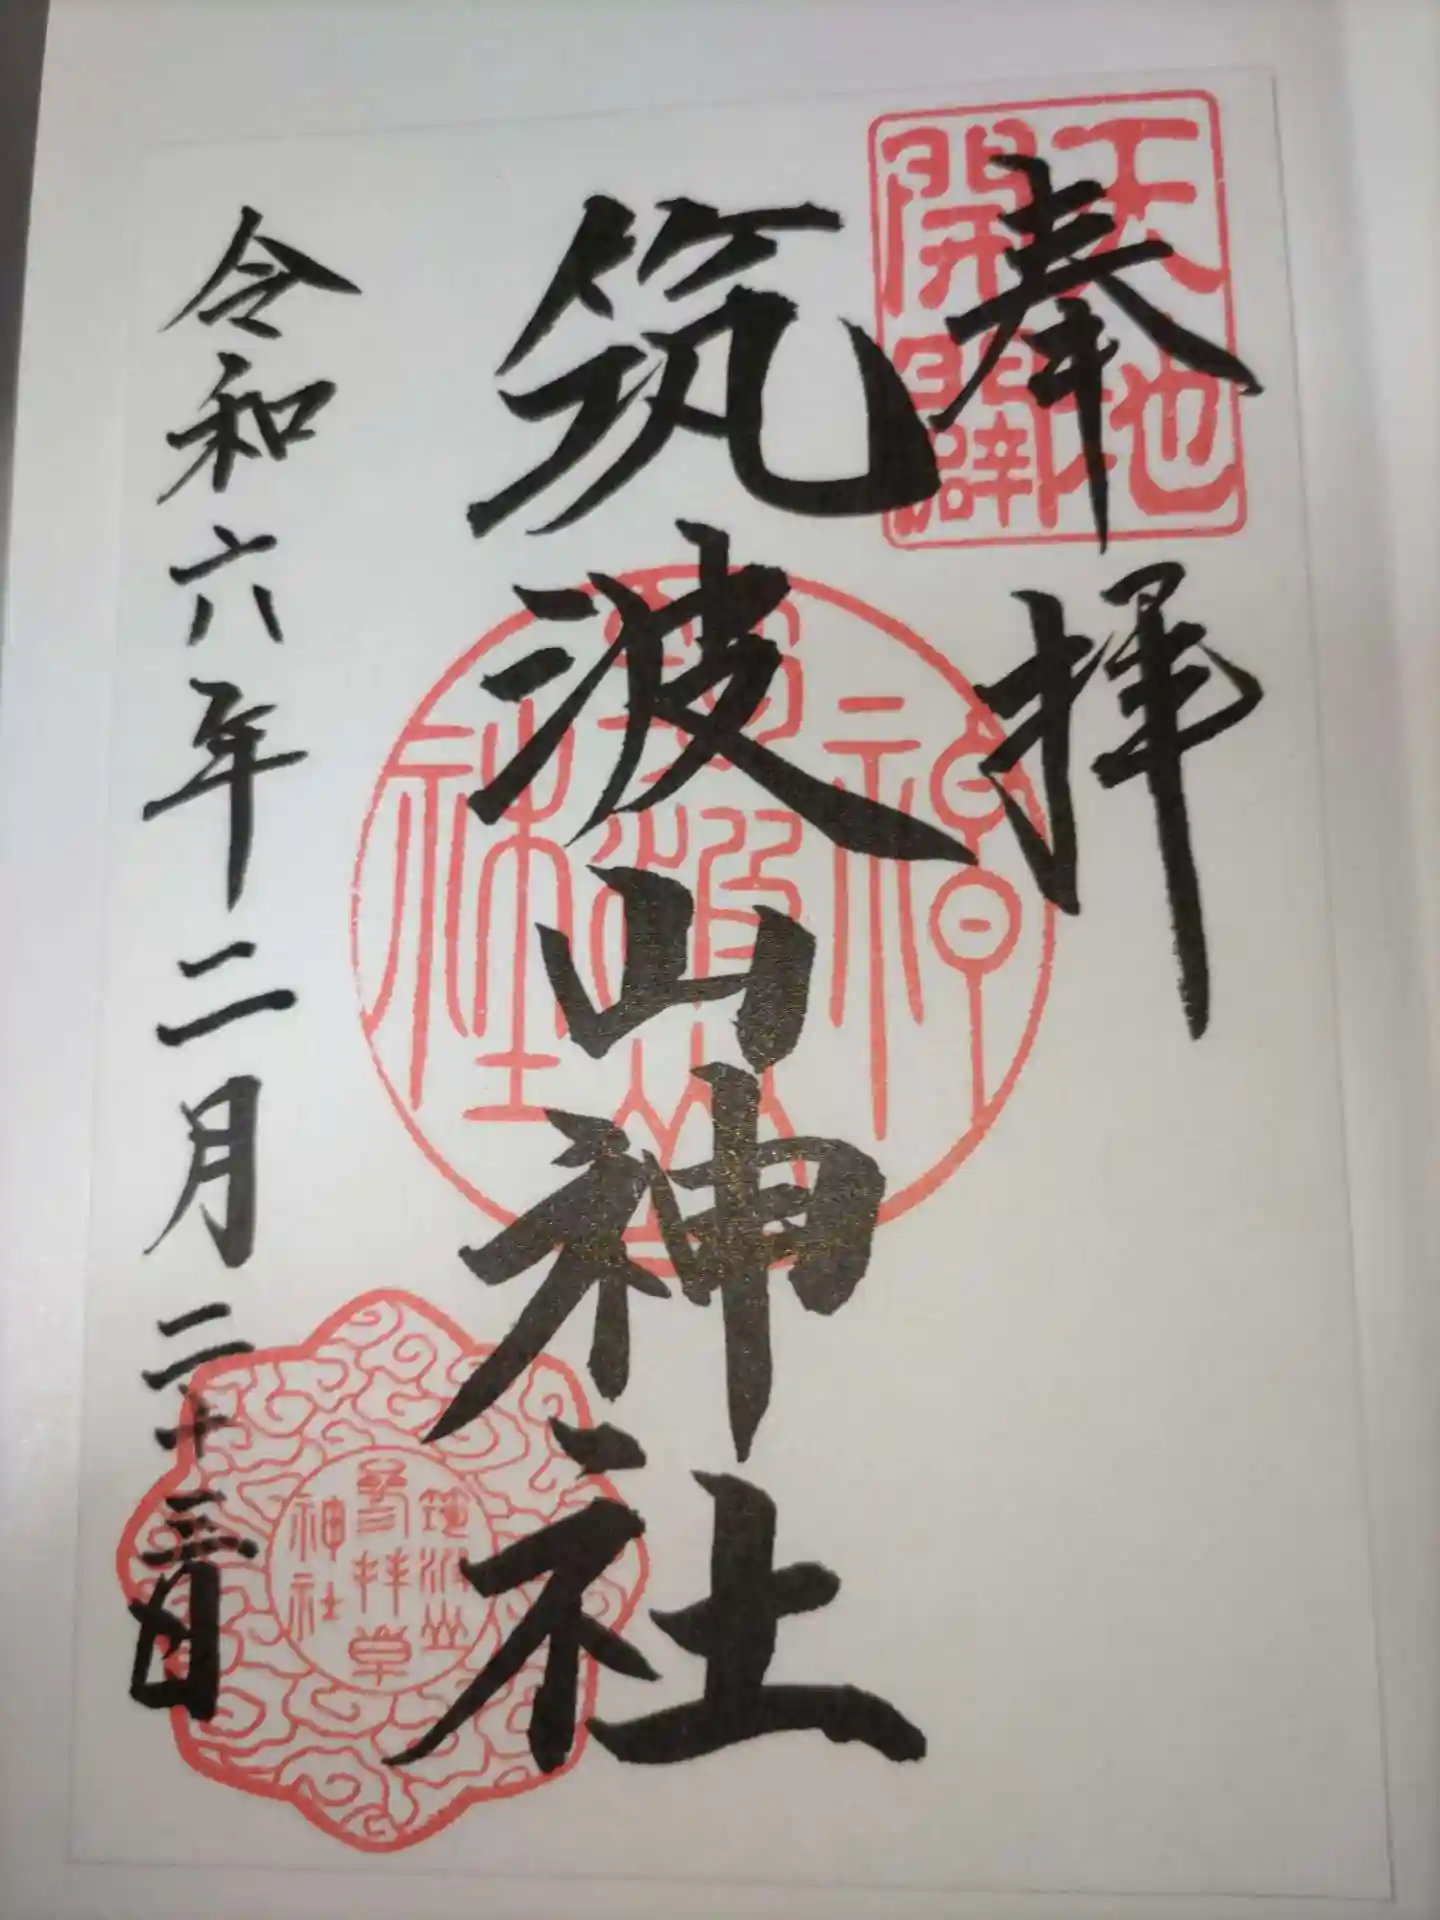 奉拝
天地
開闢
筑波山神社
令和六年二月二十三日
筑波山
参拝章
神社